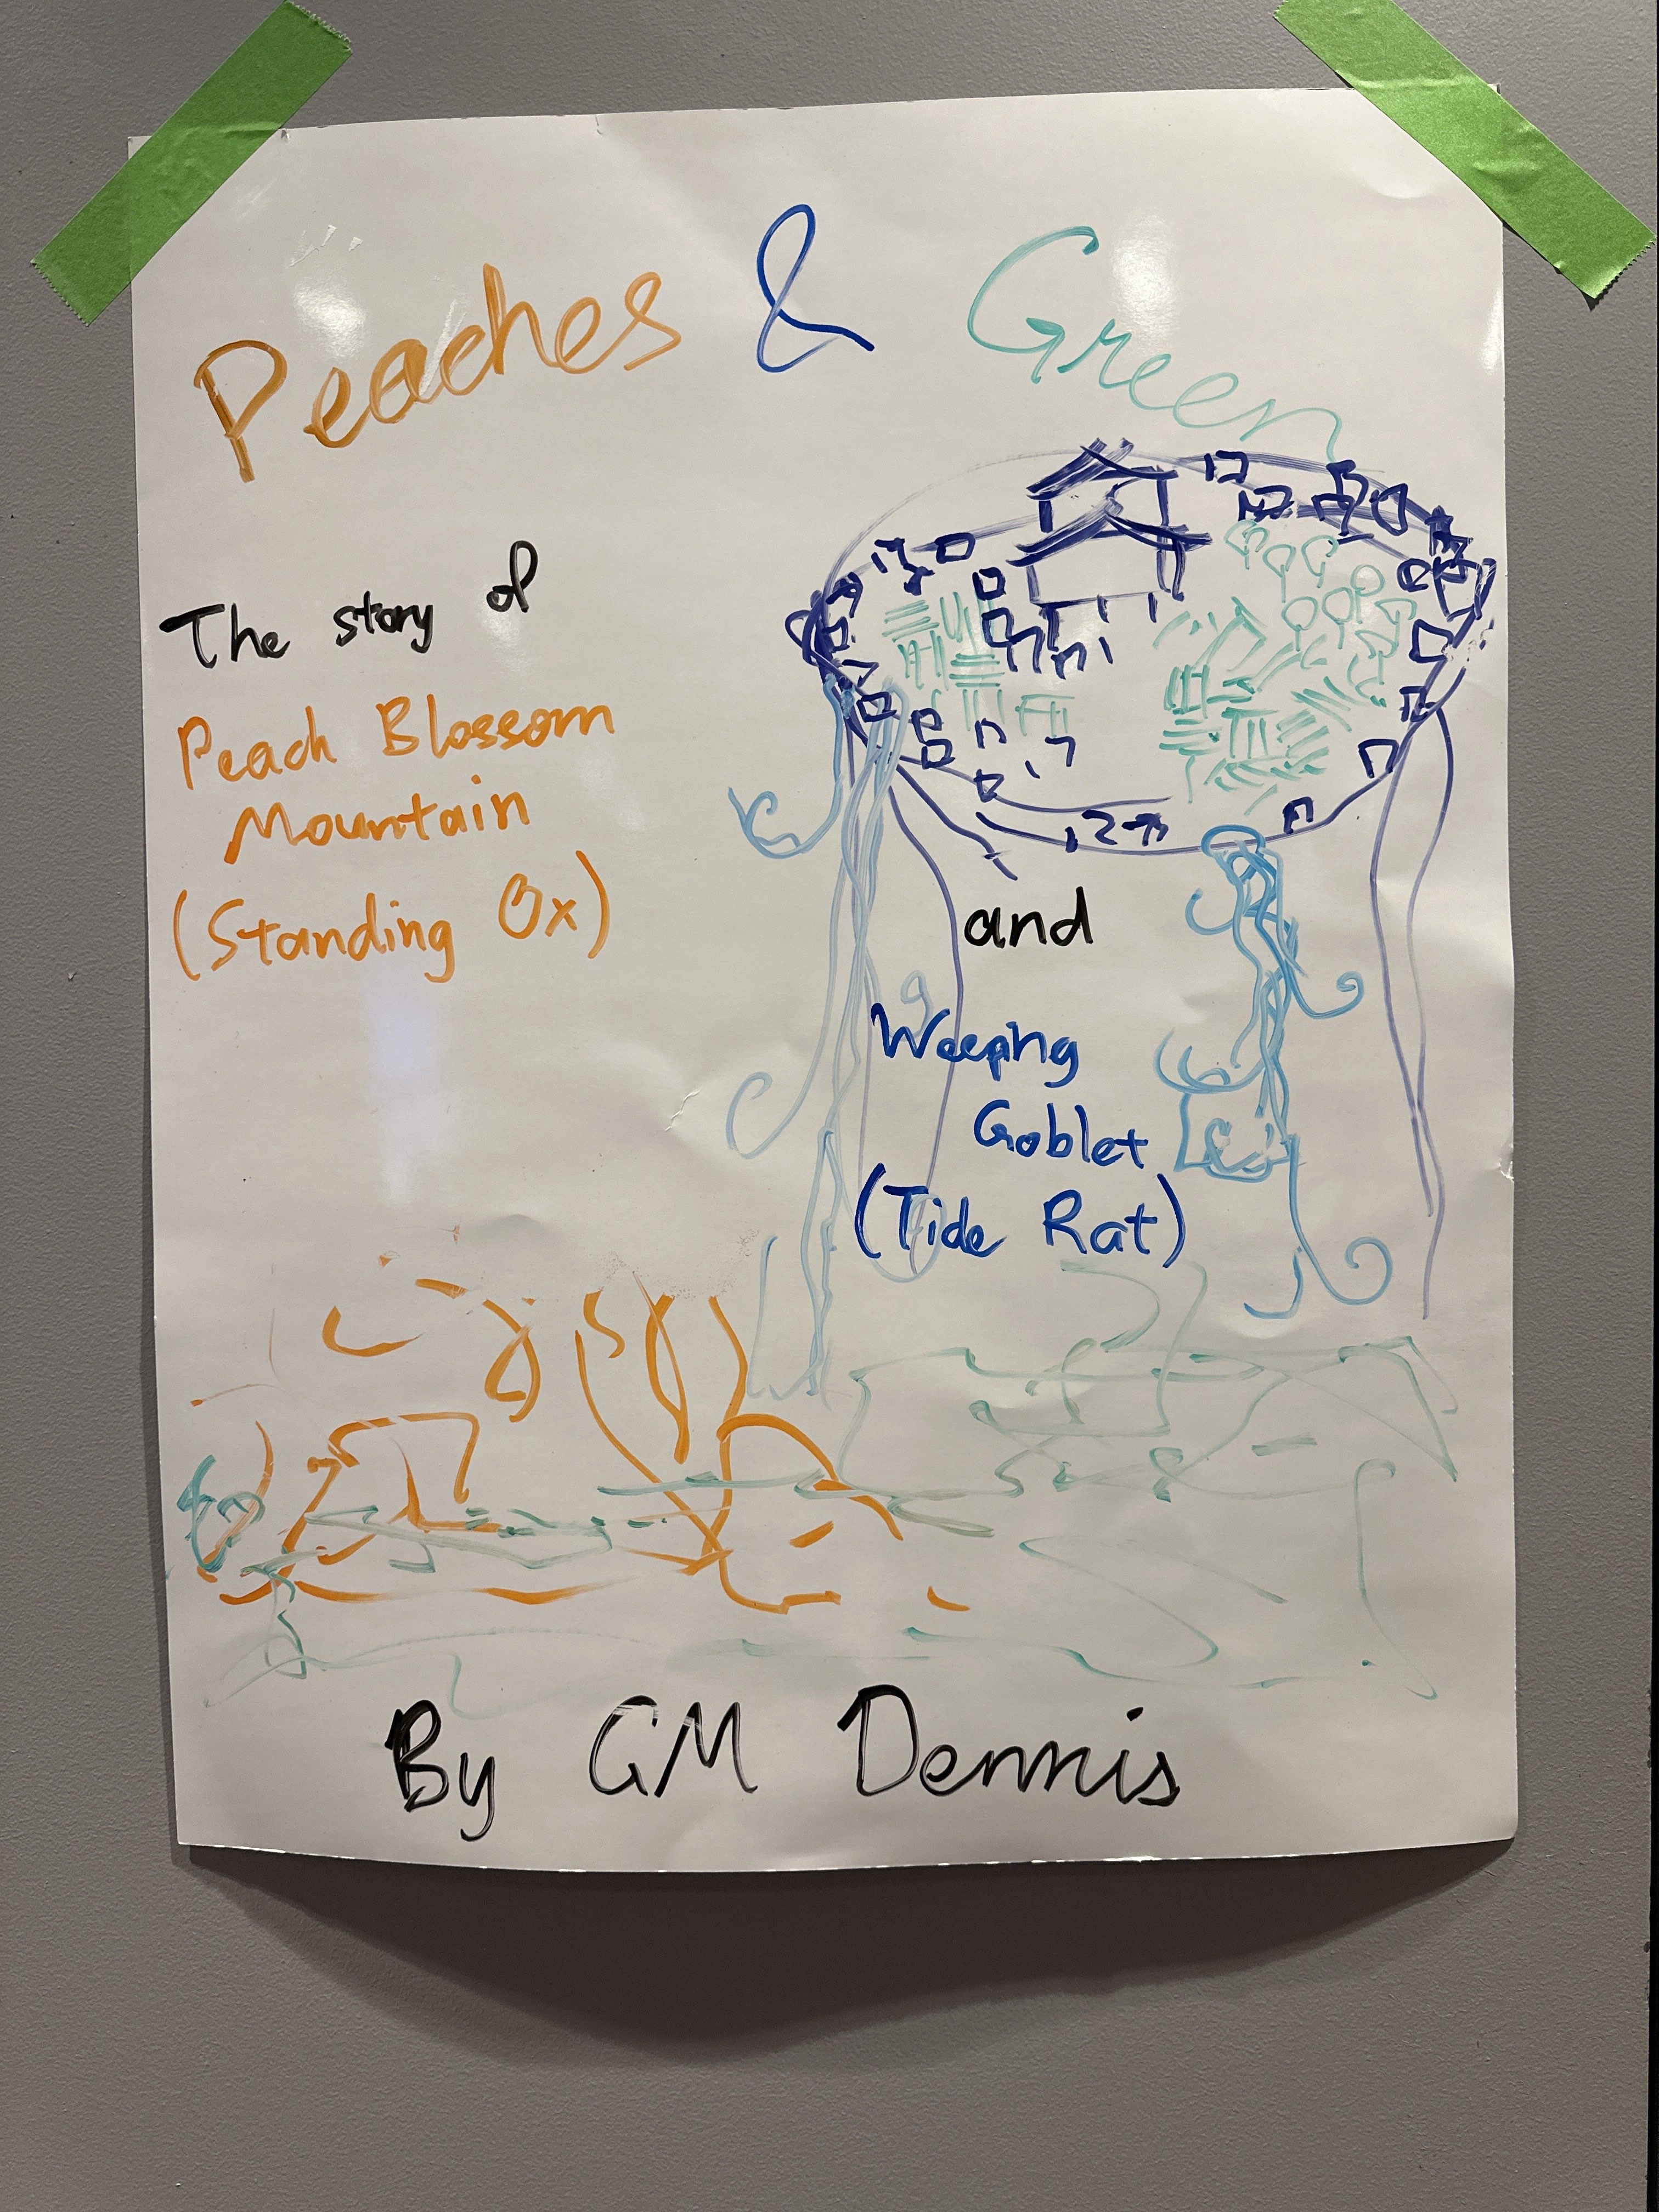 Peaches & Green
The story of
Peach Blossom
Mountain
(Standing Ox)
and
Weeping
Goblet
(Tide Rat)
By GM Dennis